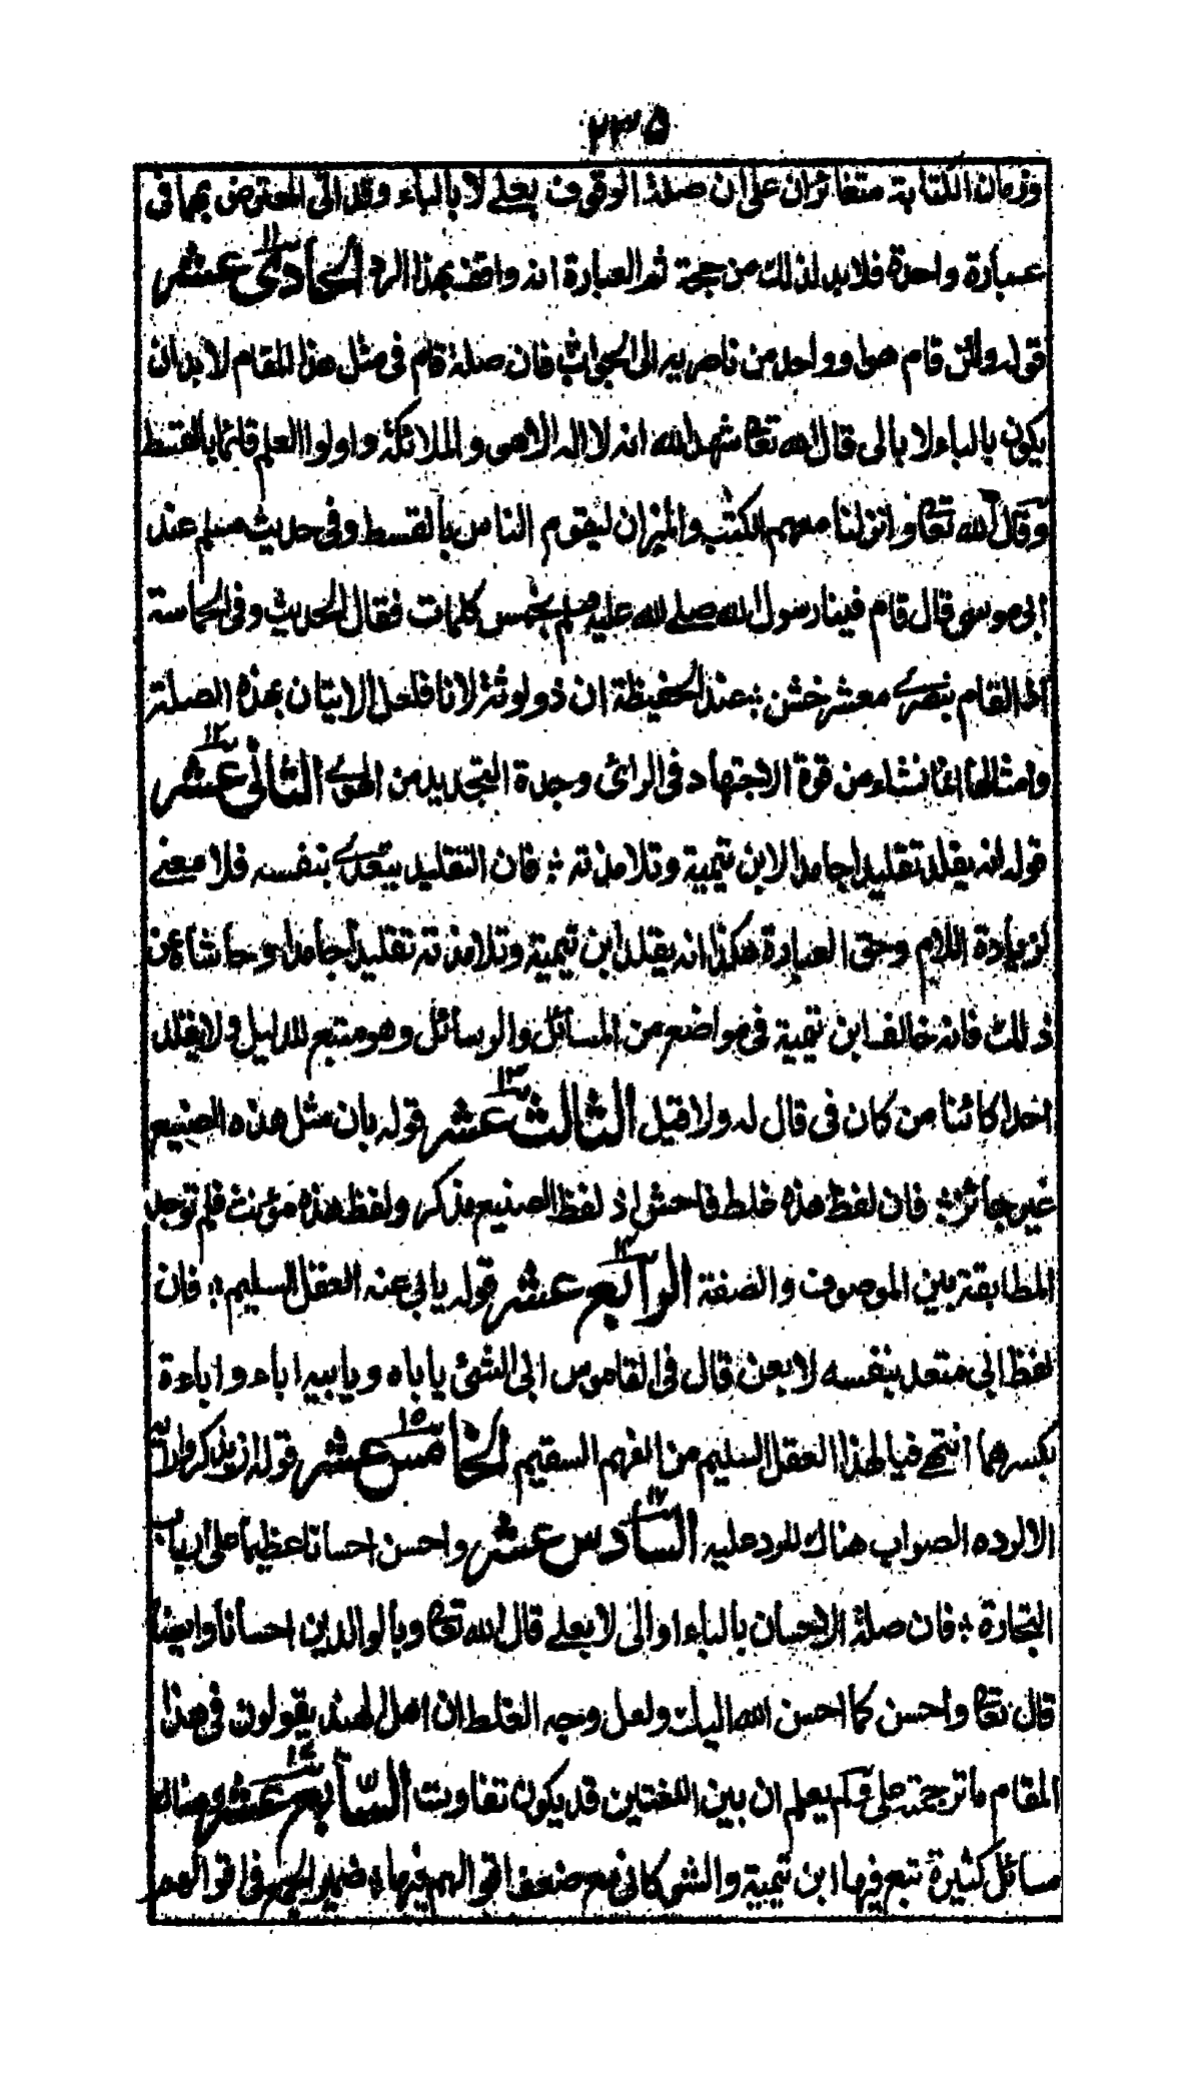 ٢٣۵
وزمان الكتابة متغائران على ان صلة الوقوف بعلے لا بالباء وقد اتى المعترض بهما فى
عبارة واحدة فلا بد لذلك من حجة ثم العبارة انه واقف بهذا الرد الحادى عشر ١١
قوله ولئن قام هو او واحد من ناصريه الى الجواب فان صلة قام فى مثل هذا المقام لا بد ان
يكون بالباء لا بالى قال الله تعا شهد الله انه لا اله الا هو والملائكة واولوا العلم قائما بالقسط
وقال الله تعا وانزلنا معهم الكتب والميزان ليقوم الناس بالقسط وفى حديث مسلم عند
ابى موسى قال قام فينا رسول الله صلے الله عليه وسلم بخمس كلمات فقال الحديث وفى الحماسة
اذا لقام بنصرے معشر خشن ؛ عند الحفيظة ان ذو لوثة لانا فلعل الاتيان بهذه الصلة
وامثالها انما نشاء من قوة الاجتهاد فى الرائى وجدة التجديد من الهوے الثانى عشر ١٢
قوله انه يقلد تقليدا جامدا لابن تيمية وتلامذته ؛ فان التقليد يتعدے بنفسه فلا معنے
لزيادة اللام وحق العبارة هكذا انه يقلد ابن تيمية وتلامذته تقليدا جامدا وحاشاه عن
ذلك فانه خالف ابن تيمية فى مواضع من المسائل والرسائل وهو متبع للدليل ولا يقلد
احدا كائنا من كان فى قال له ولا قيل الثالث عشر ١٣ قوله بان مثل هذه الصنيع
غير جائز ؛ فان لفظ هذه غلط فاحش اذ لفظ الصنيع مذكر ولفظ هذه مؤنث فلم توجد
المطابقة بين الموصوف والصفة الرابع عشر ١٤ قوله يابى عنه العقل السليم ؛ فان
لفظ ابى متعد بنفسه لا بعن قال فى القاموس ابى الشئ ياباه ويابيه اباء واباءة
بكسرهما انتهے فيا لهذا العقل السليم من الفهم السقيم الخامس عشر ١٥ قوله ان يذكر
الا لرده الصواب هناك للرد عليه السادس عشر ١٦ واحسن احسانا عظيما على ارباب
التجارة ؛ فان صلة الاحسان بالباء او الى لا بعلے قال الله تعا وبالوالدين احسانا وايضا
قال تعا واحسن كما احسن الله اليك ولعل وجه الغلط ان اهل الهند يقولون فى هذا
المقام ما ترجمته على ولم يعلم ان بين اللغتين قد يكون تفاوت السابع عشر ١٧ وهناك
مسائل كثيرة تبع فيها ابن تيمية والشوكانى مع ضعف اقوالهم فيها ؛ ضمير الجمع فى اقوالهم